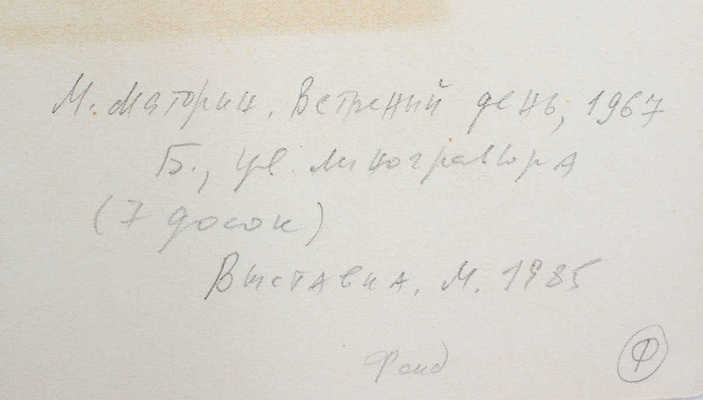 М. Маторин. Ветреный день, 1967
Б., цв. линогравюра
(7 досок)
Выставка. М. 1985
Фонд
Ф